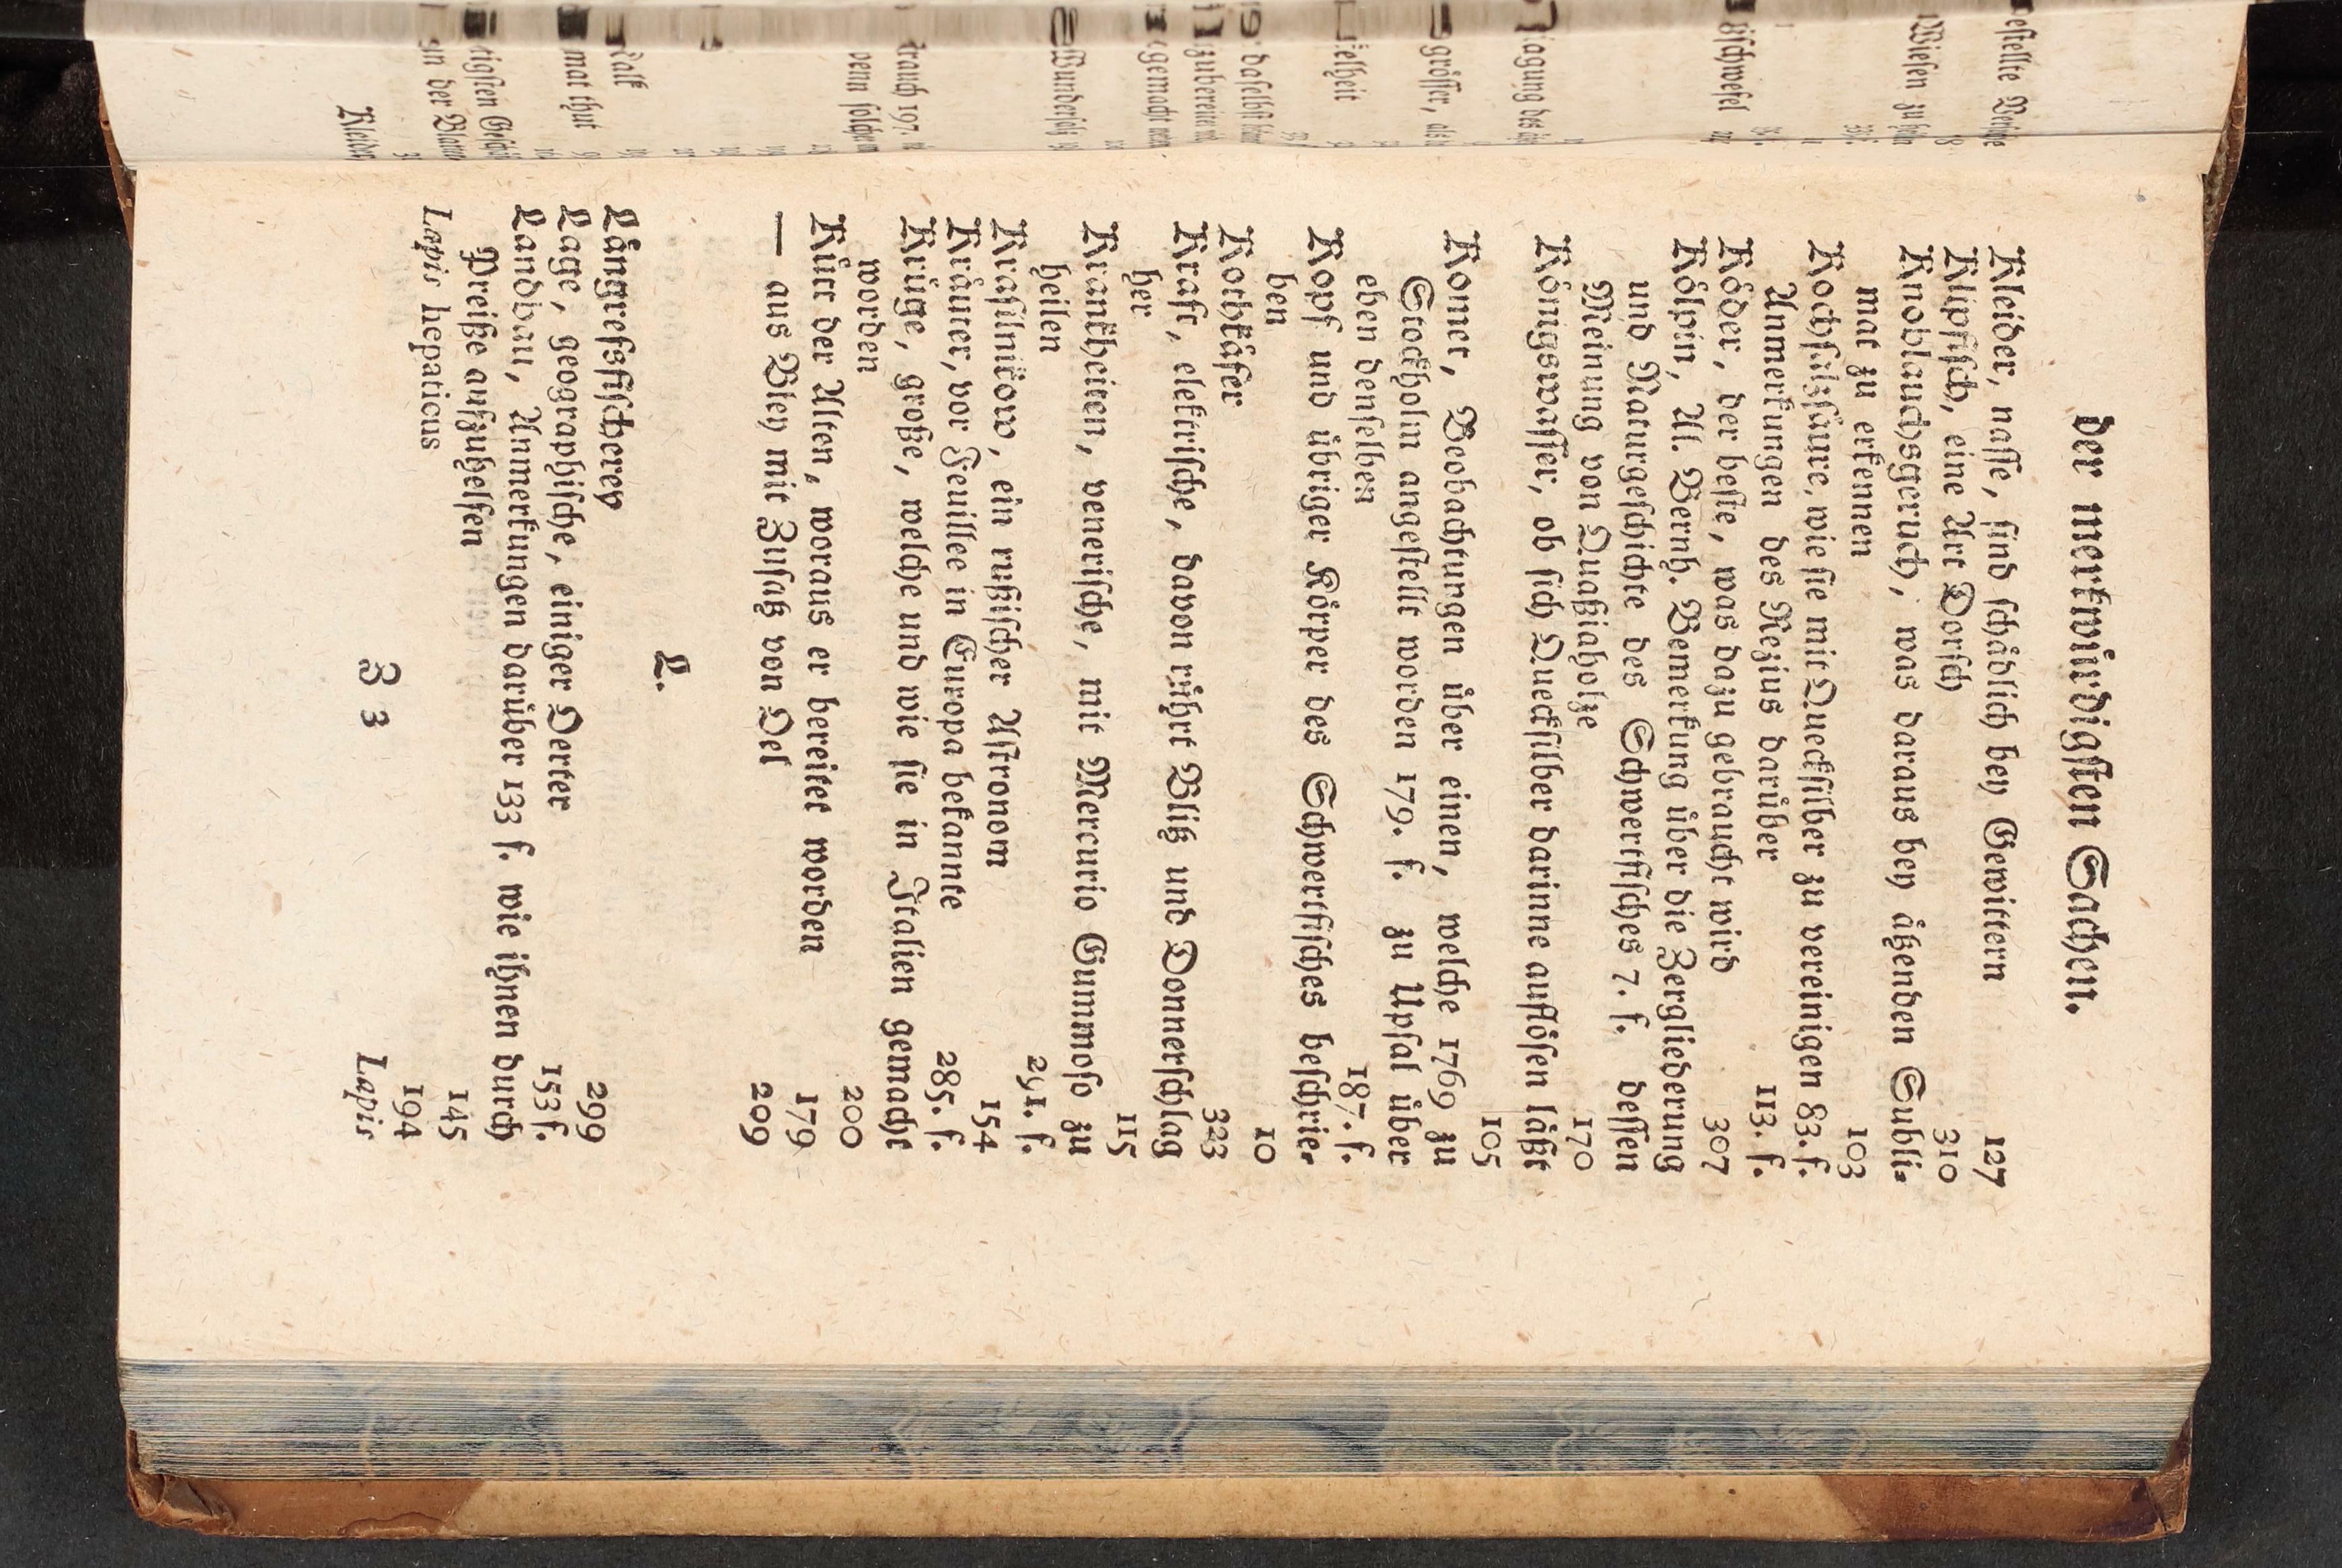 der merkwürdigsten Sachen.
Kleider, nasse, sind schädlich bey Gewittern 127
Klipfisch, eine Art Dorsch 310
Knoblauchsgeruch, was daraus bey äßenden Subli-
mat zu erkennen 103
Kochsalzsäure, wie sie mit Quecksilber zu vereinigen 83. f.
Anmerkungen des Rezius darüber 113. f.
Köder, der beste, was dazu gebraucht wird 307
Kölpin, Al. Bernh. Bemerkung über die Zergliederung
und Naturgeschichte des Schwertfisches 7. f. dessen
Meinung von Quaßiaholze 170
Königswasser, ob sich Quecksilber darinne auflösen läßt
105
Komet, Beobachtungen über einen, welche 1769 zu
Stockholm angestellt worden 179. f. zu Upsal über
eben denselben 187. f.
Kopf und übriger Körper des Schwertfisches beschrie-
ben 10
Kothkäfer 323
Kraft, elektrische, davon rührt Blitz und Donnerschlag
her 115
Krankheiten, venerische, mit Mercurio Gummoso zu
heilen 291. f.
Krasilnikow, ein rußischer Astronom 154
Kräuter, vor Feuillee in Europa bekannte 285. f.
Krüge, große, welche und wie sie in Italien gemacht
worden 200
Kütt der Alten, woraus er bereitet worden 179
— aus Bley mit Zusatz von Oel 209
L.
Längrefsfischerey 299
Lage, geographische, einiger Oerter 153 f.
Landbau, Anmerkungen darüber 133 f. wie ihnen durch
Preiße aufzuhelfen 145
Lapis hepaticus 194
Z 3
Lapis